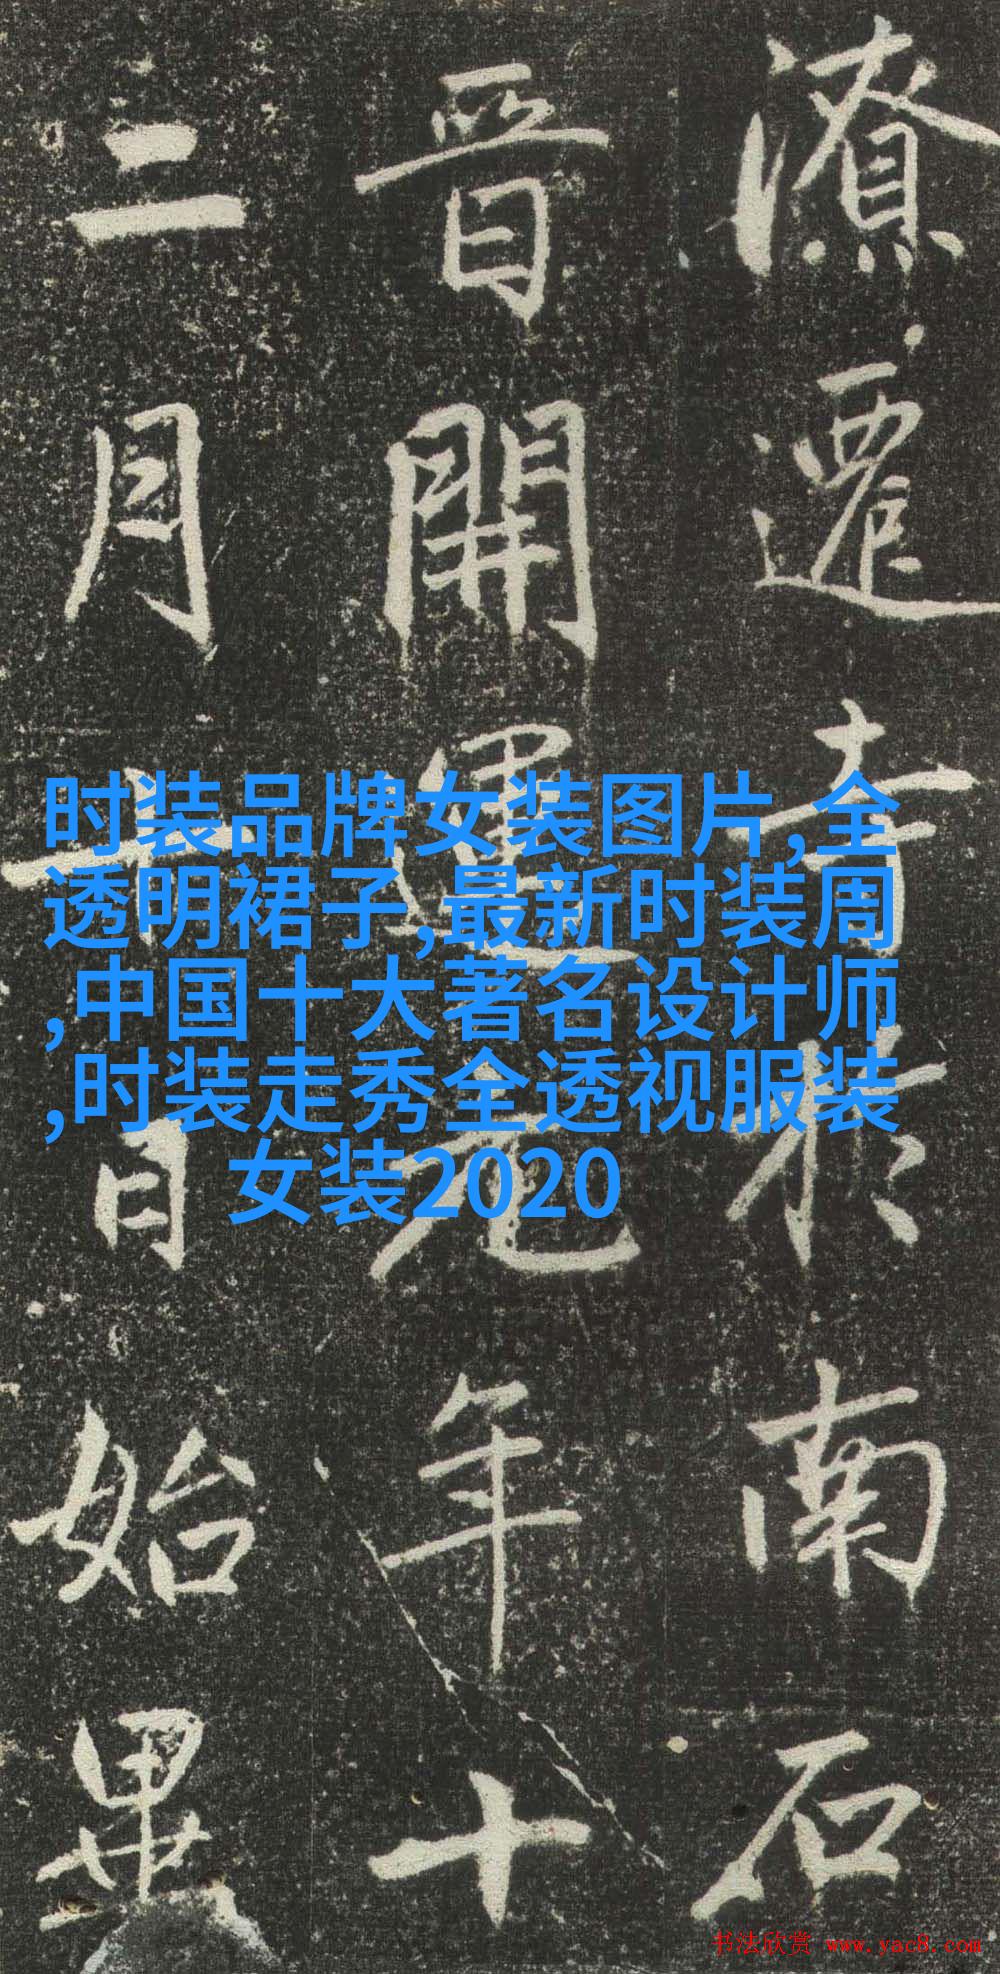 潦遷寺於南石
晉開運元年十
二月廿日始畢
时装品牌女装图片,全
透明裙子,最新时装周
,中国十大著名设计师
,时装走秀全透视服装
女装2020
书法欣赏 www.yac8.com